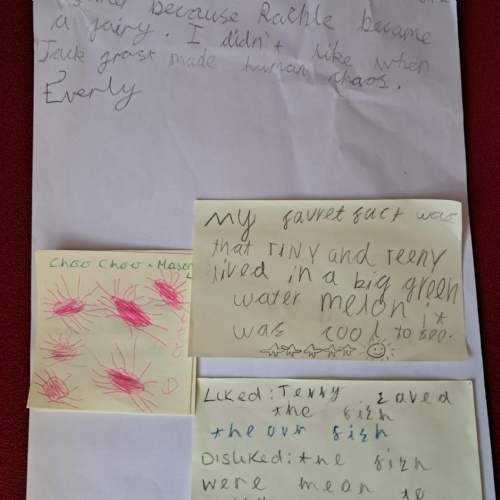 because Rachle became
a fairy. I didn't like when
Jack grast made human chaos.
Everly
My favret fact was
that TINY and TEENY
lived in a big green
water melon it
was cool to see.
Choo Choo - Mason
L
Liked: Terry saved
the fish
the our fish
Disliked: the fish
were mean to